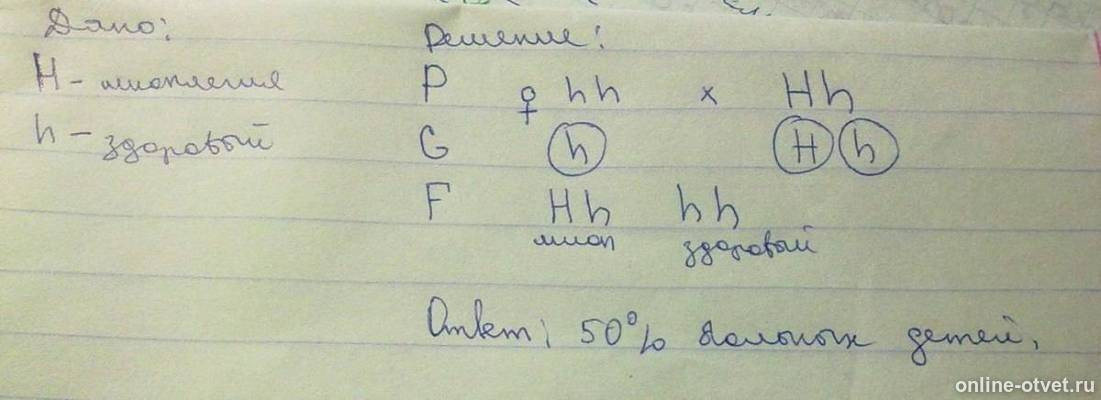 Дано:
H - миоплегия
h - здоровый
Решение:
P ♀ hh x Hh
G h H h
F Hh hh
миоп здоровый
Ответ: 50% больных детей.
online-otvet.ru